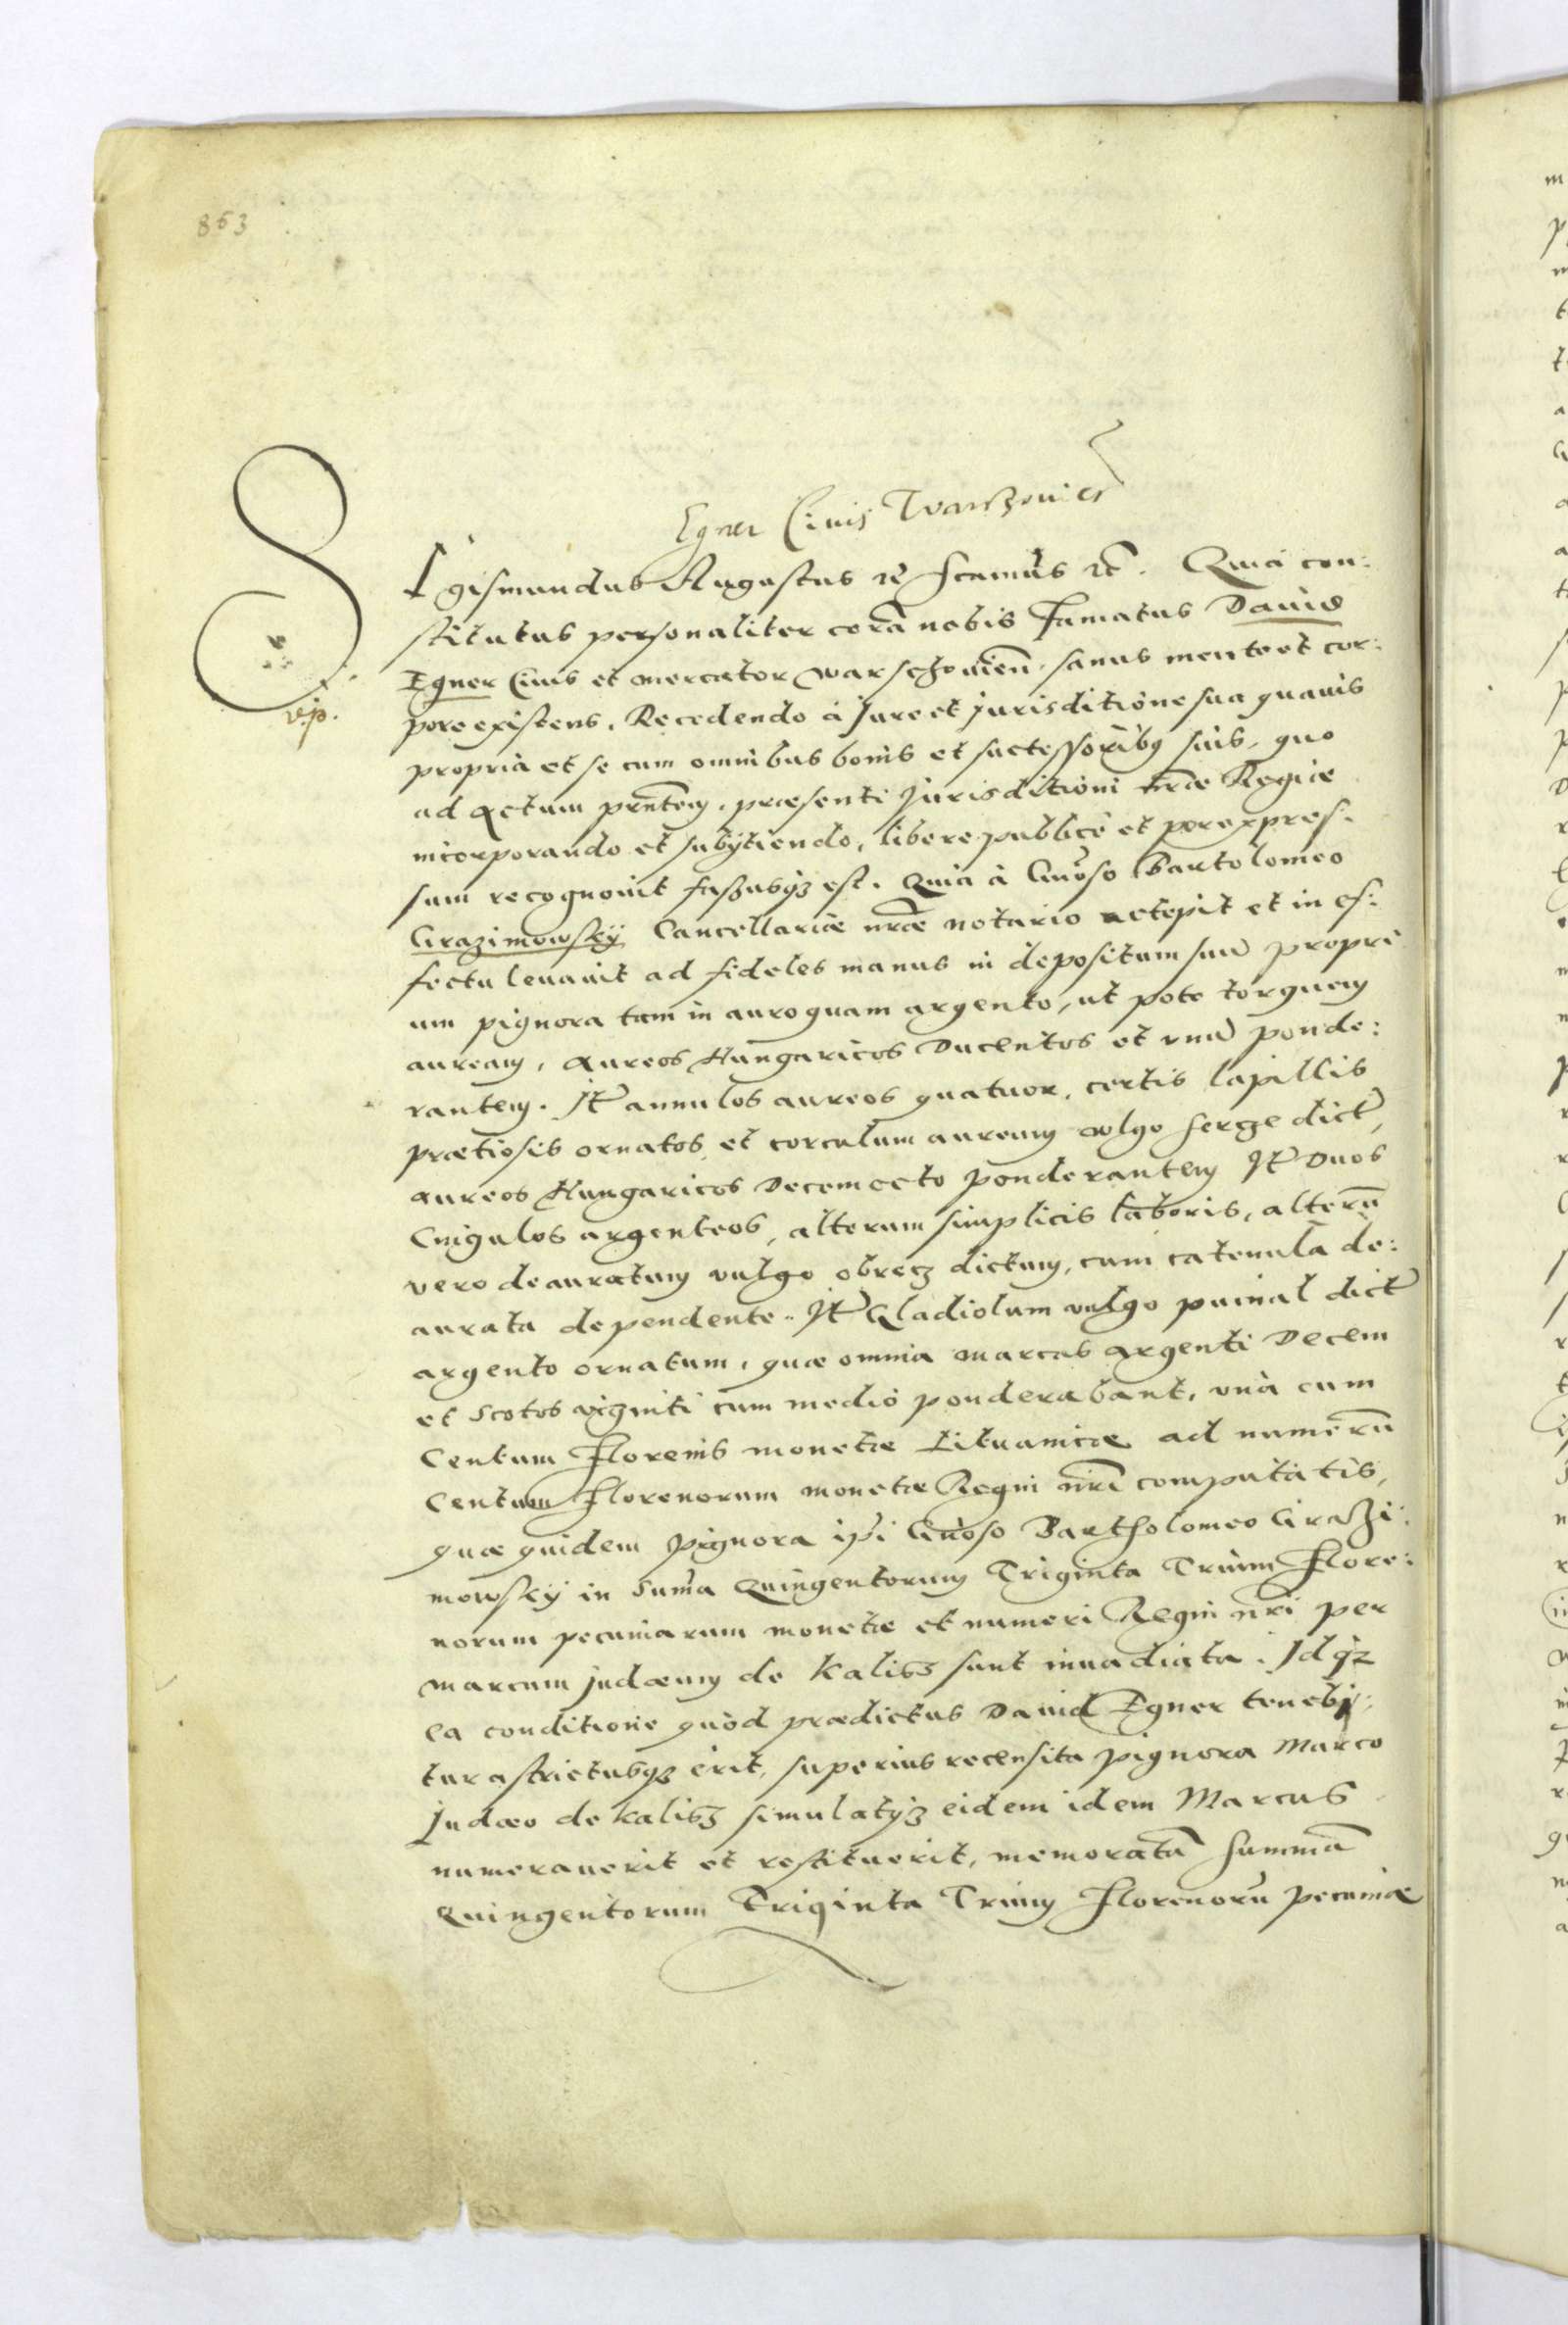 853
Egner Civis Warszovien
SIgismundus Augustus rê scimus rc̃. Quia con:
stitutus personaliter corã nobis Famatus David
Egner Civis et mercator warschovieñ. sanus mente et cor:
pore existens. Recedendo à Jure et jurisditione sua quavis
propria et se cum omnibus bonis et successoribq suis, quo
ad Actum prñtem, praesenti Jurisditioni nrãe Regiae
incorporando et subÿtiendo, libere publicè et per expres:
sum recognovit fassusqz est. Quia à Gnõso Bartolomeo
Grazimowskÿ Cancellariae nrãe notario actepit et in ef:
fectu levavit ad fideles manus in depositum suũ propri
um pignora tam in auro quam argento, ut pote torquem
auream, Aureos Hungaricos Ducentos et vnũ ponde:
rantem. Jt̃ annulos aureos quatuor, certis lapillis
praetiosis ornatos et corculum aureum vulgo serce dict̃,
aureos Hungaricos Decemocto ponderantem Jt̃ Duos
Cingulos argenteos, alterum simplicis laboris, alterũ
vero deauratum vulgo obrecz dictum, cum catenula de:
aurata dependente. Jt̃ Gladiolum vulgo puinal dict̃
argento ornatum, quae omnia marcas Argenti Decem
et Scotos viginti cum medio ponderabant, vnà cum
Centum Florenis monetae Lituanicae ad numerũ
Centum Florenorum monetae Regni nrĩ computatis,
quae quidem pignora ipi Gnõso Bartholomeo Graszi:
mowskÿ in Sum̃a Quingentorum Triginta Trium Flore:
norum pecuniarum monetae et numeri Regni nrĩ per
marcum judaeum de Kalisz sunt invadiata. Jdqz
ea conditione quòd praedictus David Egner tenebi:
tur astrictusqz erit, superius recensita pignora Marco
Judaeo de Kalisz simulatqz eidem idem Marcus
numeraverit et restituerit, memoratã summã
Quingentorum Triginta Trium Florenorũ pecuniae